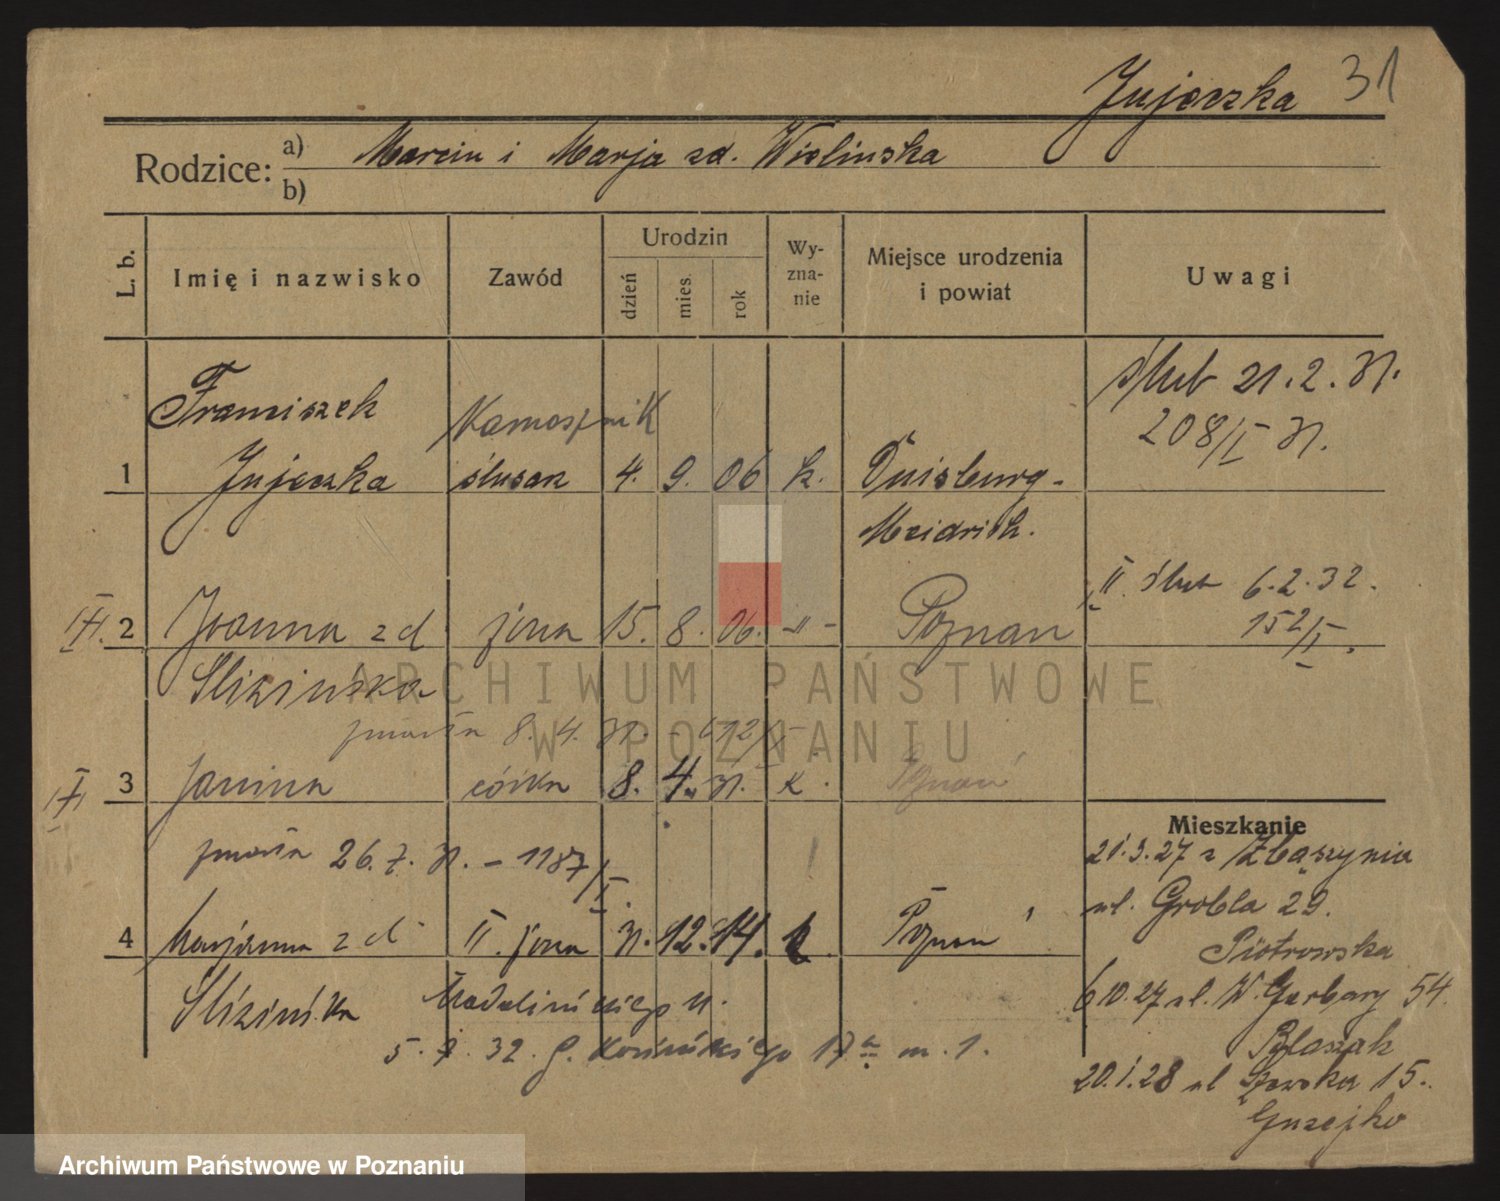 Jujeczka 31
Rodzice: a) Marcin i Marja zd. Wielinska
b)
L. b. Imię i nazwisko Zawód Urodzin dzień mies. rok Wy-zna-nie Miejsce urodzenia i powiat Uwagi
ślub 21.2.31.
208/II 31.
Franciszek Kamasznik
1 Jujeczka ślusarz 4. 9. 06 k. Duisburg-
Meidrich.
II. ślub 6.2.32.
152/I.
2 Joanna zd żona 15. 8. 06. -"- Poznan
Slizińska
zmarła 8. 4. 31. - 612/I
3 Janina córka 8. 4. 31. k. Poznań
zmarła 26.7.31. - 1187/I.
4 Marjanna zd II. żona 31. 12. 14. k Poznan
Slizińska Madalińskiego 11.
5. 7. 32. G. Kosińskiego 17a m. 1.
Mieszkanie
21.3.27 z Zbąszynia
ul. Grobla 29.
Piotrowska
6.10.27 ul. W. Garbary 54.
Blaszak
20.1.28 ul Szewska 15.
Guzejko
ARCHIWUM PAŃSTWOWE
W POZNANIU
Archiwum Państwowe w Poznaniu